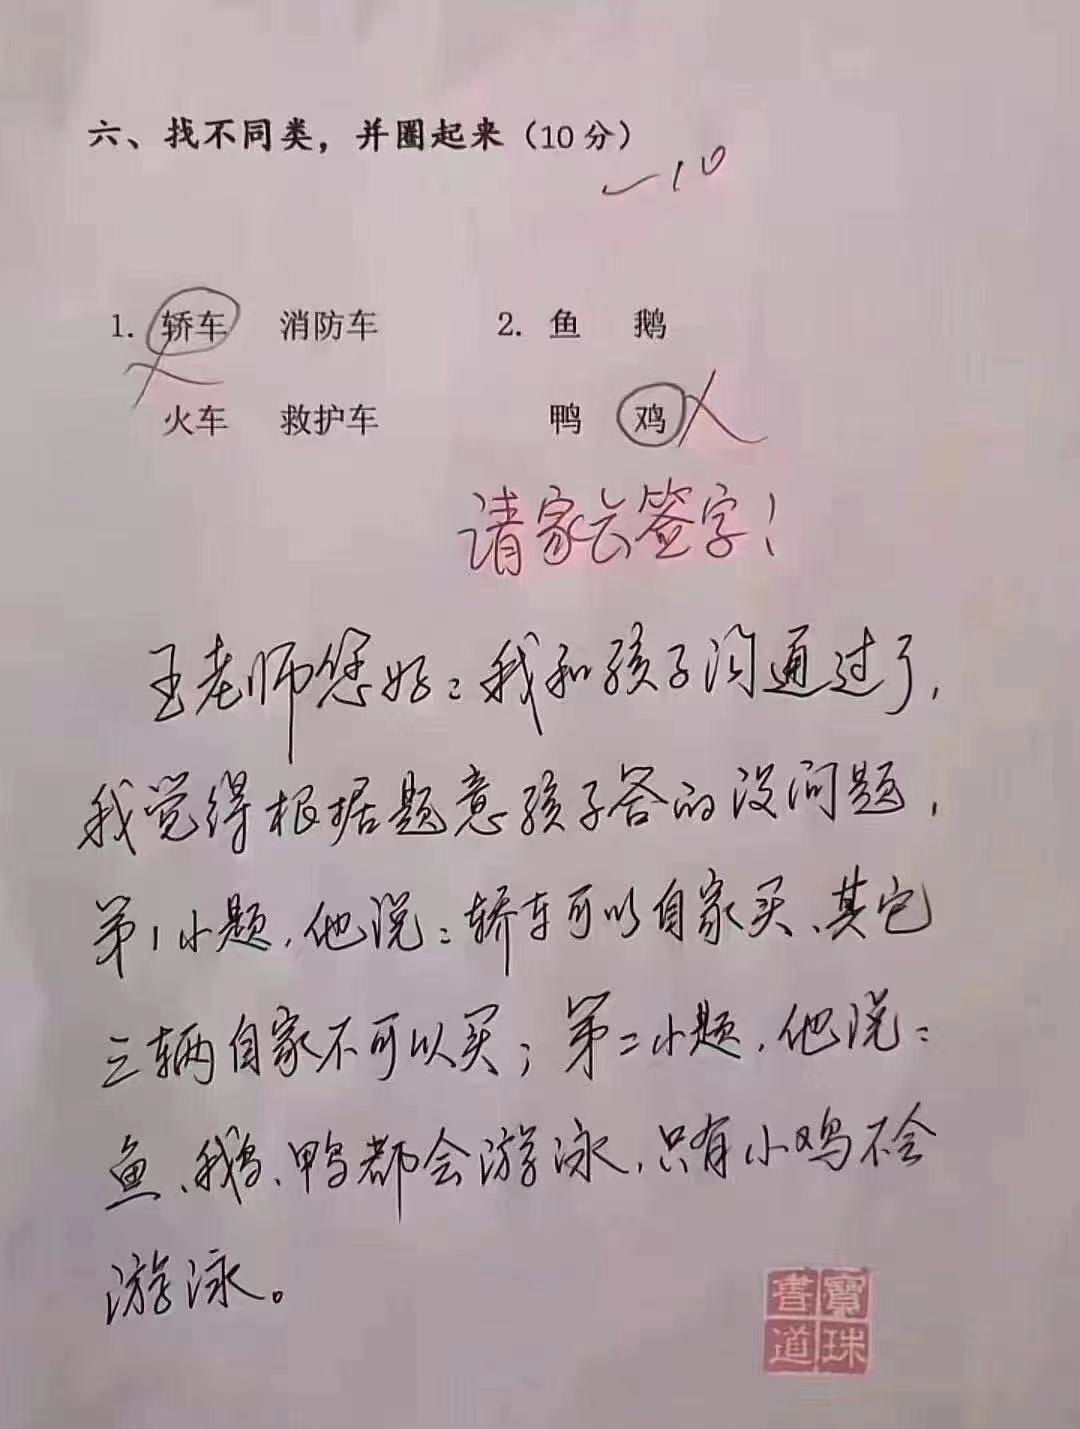 六、找不同类，并圈起来（10分）
-10
1. 轿车 消防车
火车 救护车
2. 鱼 鹅
鸭 鸡
请家长签字！
王老师您好：我和孩子沟通过了，
我觉得根据题意孩子答的没问题，
第1小题，他说：轿车可以自家买、其它
三辆自家不可以买；第二小题，他说：
鱼、鹅、鸭都会游泳，只有小鸡不会
游泳。
寶珠書道